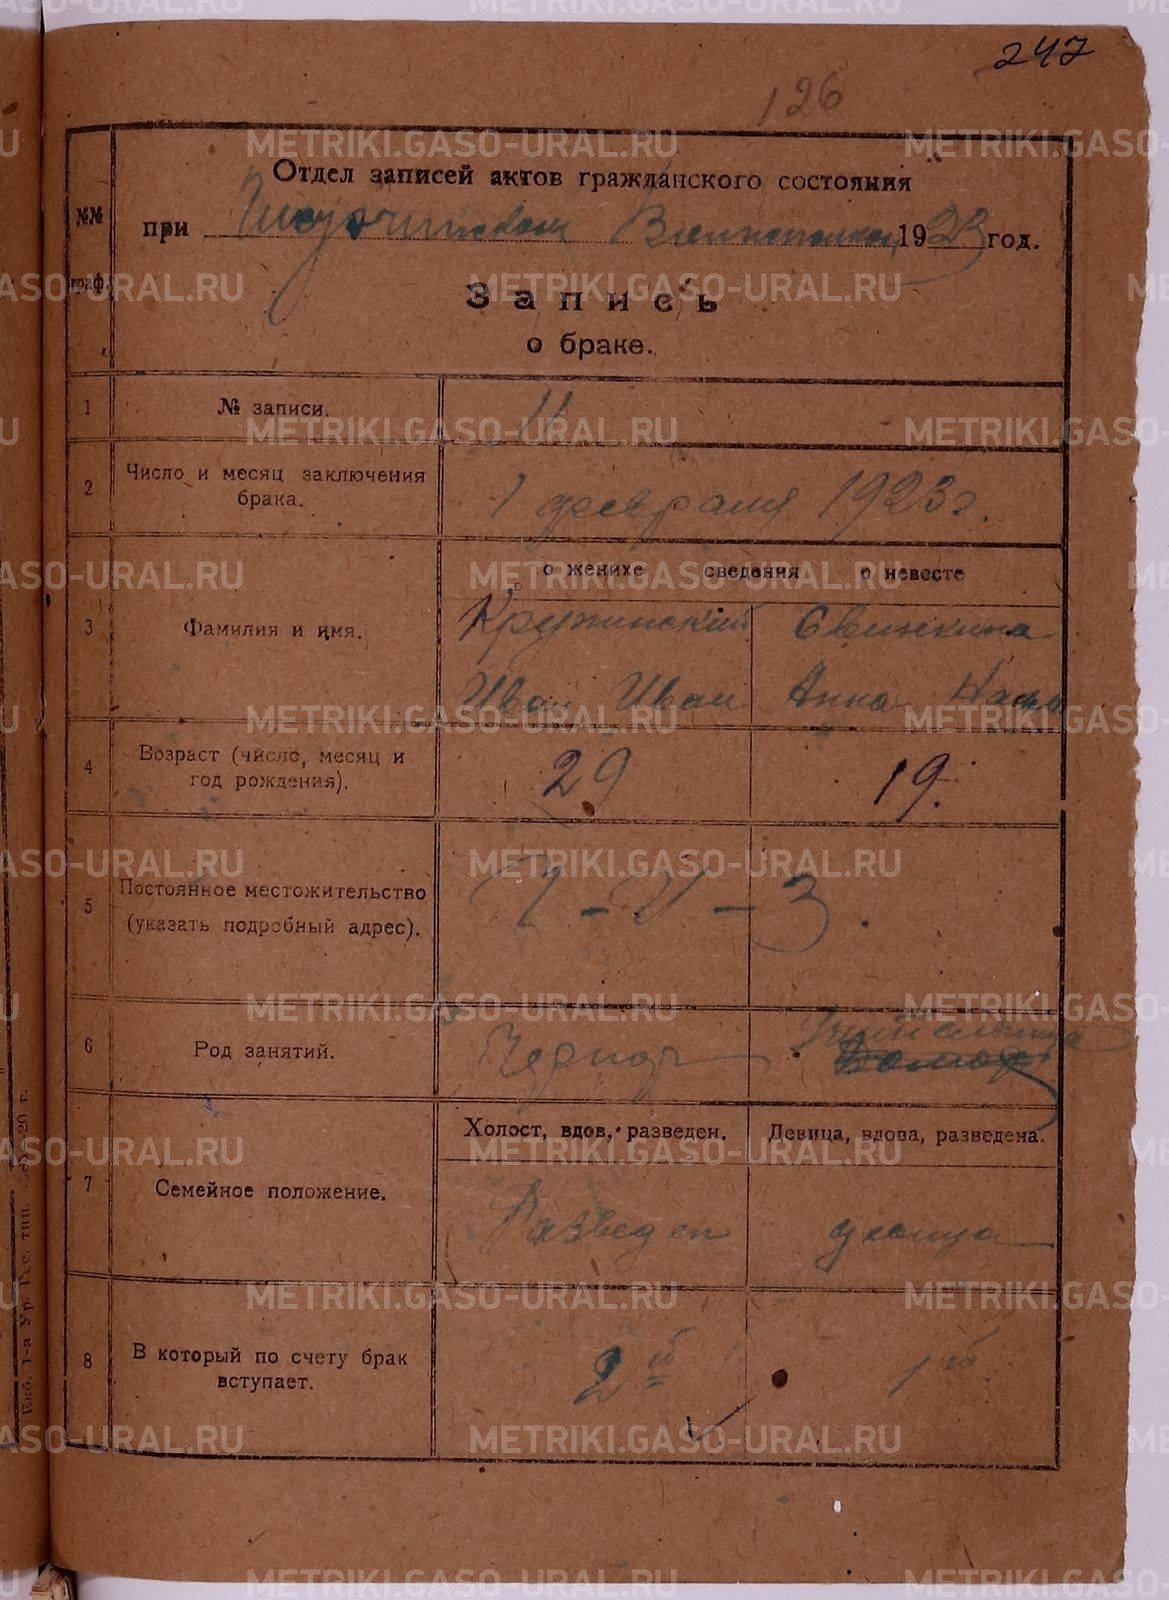 247
126
№№ граф.
Отдел записей актов гражданского состояния
при 1923 год.
Запись
о браке.
1 № записи. 11
2 Число и месяц заключения брака. 1 февраля 1923 г.
о женихе сведения о невесте
3 Фамилия и имя.
Кружинский Свинкина
Иван Иван Анна
4 Возраст (число, месяц и год рождения). 29 19.
5 Постоянное местожительство (указать подробный адрес).
6 Род занятий. Учительница
Холост, вдов, разведен. Девица, вдова, разведена.
7 Семейное положение. Разведен девица
8 В который по счету брак вступает. 2й 1й
METRIKI.GASO-URAL.RU